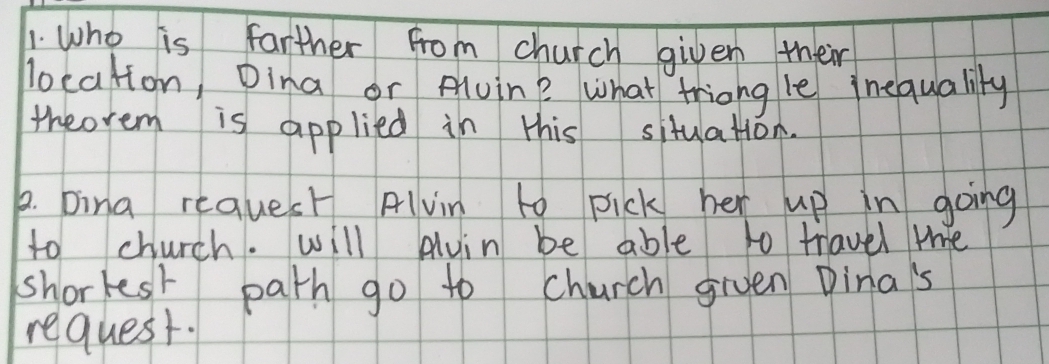 1. Who is farther from church given their
location, Dina or Alvin? What triangle inequality
theorem is applied in this situation.
2. Dina request Alvin to pick her up in going
to church. will Alvin be able to travel the
shortest path go to church given Dina's
request.